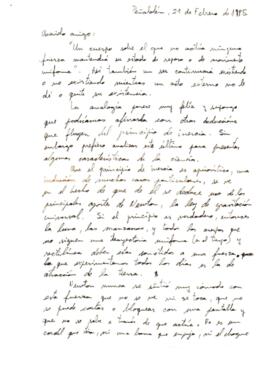 Peñalolén, 21 de Febrero de 1985
Querido amigo:
"Un cuerpo sobre el que no actúa ninguna
fuerza mantendrá su estado de reposo o de movimiento
uniforme". Así también un ser continuará existiendo
o no existiendo mientras un acto externo no le
dé o quite su existencia.
La analogía parece muy feliz y supongo
que podríamos afirmarla con otras deducciones
que fluyen del principio de inercia. Sin
embargo prefiero analizar este último para presentar
algunas características de la ciencia.
Que el principio de inercia es apriorístico, una
inducción de muchos casos particulares, se ve
en el hecho de que de él se deduce uno de los
principales aportes de Newton, la ley de gravitación
universal. Si el principio es verdadero, entonces
la luna, las manzanas, y todos los cuerpos que
no siguen una trayectoria uniforme y
rectilínea deben estar sometidos a una fuerza,
la que experimentamos todos los días es la de
atracción de la tierra.
Newton nunca se sintió muy cómodo con
esta fuerza que no se ve ni se toca, que no
se puede cortar o bloquear con una pantalla y
que no se sabe a través de que actúa. No es un
cordel que tira, ni una barra que empuja, ni el choque